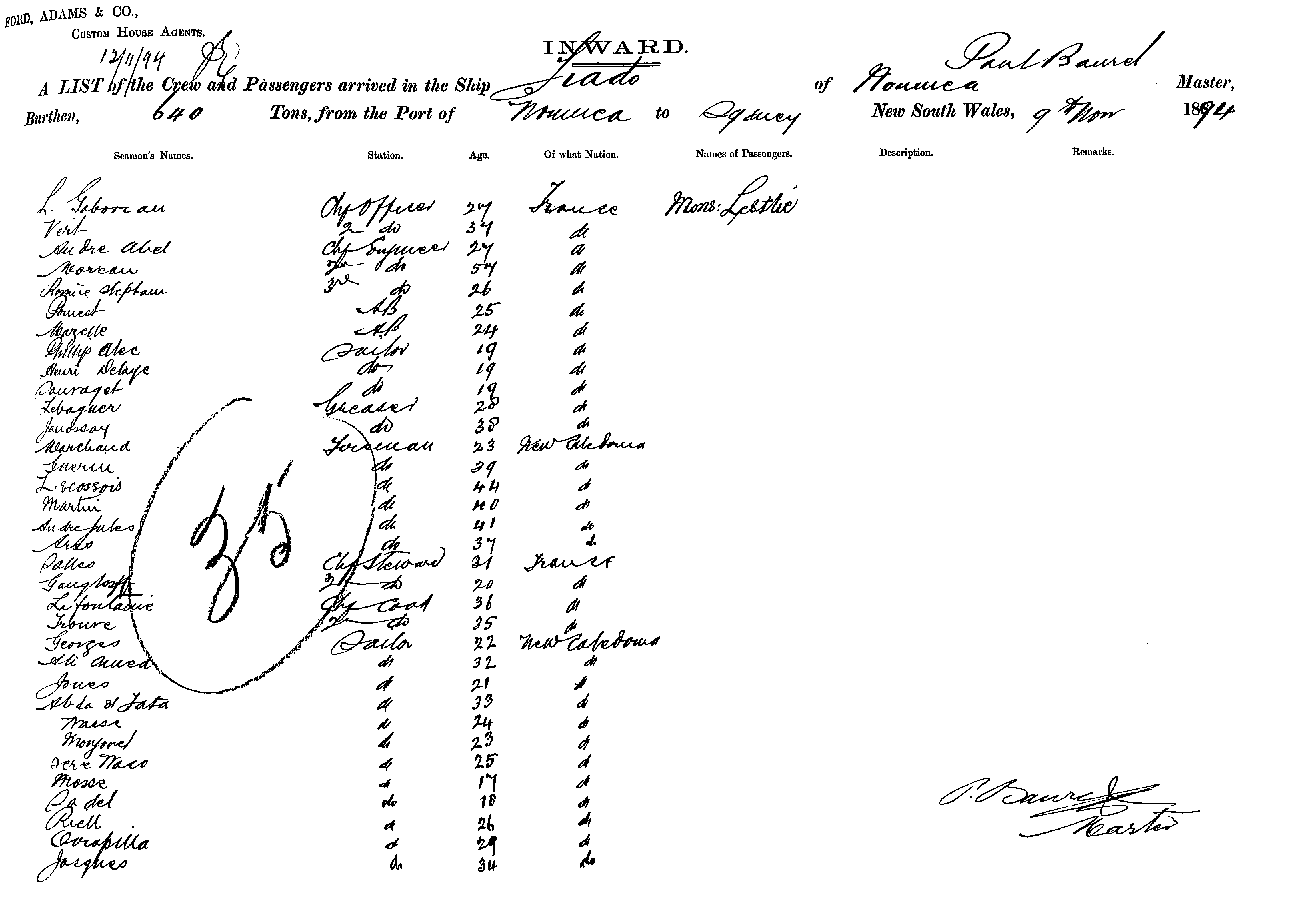 FORD, ADAMS & CO.,
CUSTOM HOUSE AGENTS.
12/11/94
INWARD.
A LIST of the Crew and Passengers arrived in the Ship of Noumea Paul Baurel Master,
Burthen, 640 Tons, from the Port of Noumea to Sydney New South Wales, 9th Nov 1894
Seamen's Names. Station. Age. Of what Nation. Names of Passengers. Description. Remarks.
L. Gaboreau Chf Officer 27 France Mons:
Vert 2 do 37 do
Andre Abel Chf Engineer 27 do
Moreau 2nd do 57 do
3rd do 26 do
AB 25 do
Mazelle AB 24 do
Philip Alec Sailor 19 do
Henri Delaye do 19 do
Sauvaget do 19 do
Lebaguer Greaser 28 do
do 38 do
Marchand Foreman 23 New Caledonia
Guerin do 39 do
Lecossois do 44 do
Martin do 40 do
Andre Jules do 41 do
do 37 do
Chf Steward 31 France
2nd do 20 do
Lefontaine Chf Cook 36 do
Trouve 2nd do 35 do
Georges Sailor 22 New Caledonia
Ali do 32 do
do 21 do
do 33 do
do 24 do
do 23 do
do 25 do
Mosse do 17 do
Cadel do 18 do
Riell do 26 do
do 29 do
Jacques do 34 do
35
P. Baurel
Master